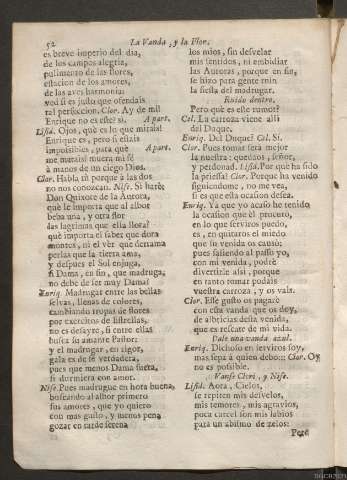 52
La Vanda, y la Flor.
es breve imperio del dia,
de los campos alegria,
pulimento de las flores,
estacion de los amores,
de las aves harmonia:
ved si es justo que ofendais
tal perfeccion. Clor. Ay de mi!
Enrique no es este? si. A part.
Lisid. Ojos, què es lo que mirais!
Enrique es, pero si estais
impossibles, para què A part.
me matais! muera mi fè
à manos de un ciego Dios.
Clor. Habla tù porque à las dos
no nos conozcan. Nise. Si harè:
Don Quixote de la Aurora,
què le importa que al albor
beba una, y otra flor
las lagrimas que ella llora?
què importa el saber que dora
montes, ni el ver que derrama
perlas que la tierra ama,
y despues el Sol enjuga,
si Dama, en fin, que madruga,
no debe de ser muy Dama?
Enriq. Madrugar entre las bellas
selvas, llenas de colores,
cambiando tropas de flores
por exercitos de Estrellas,
no es desayre, si entre ellas
busca su amante Pastor:
y el madrugar, en rigor,
gala es de fè verdadera,
pues que menos Dama fuera,
si durmiera con amor.
Nise. Pues madrugue en hora buena,
buscando al albor primero
sus amores, que yo quiero
con mas gusto, y menos pena
gozar en tardo serena
los mios, sin desvelar
mis sentidos, ni embidiar
las Auroras, porque en fin,
se hizo para gente ruin
la siesta del madrugar.
Ruido dentro.
Pero què es este rumor?
Cel. La carroza viene alli
del Duque.
Enriq. Del Duque? Cel. Si.
Clor. Pues tomar serà mejor
la nuestra: quedaos, señor,
y perdonad. Lisid. Por què ha sido
la priessa? Clor. Porque ha venido
siguiendome, no me vea,
si es que esta ocasion desea.
Enriq. Yà que yo acaso he tenido
la ocasion que èl procurò,
en lo que serviros puedo,
es, en quitaros el miedo
que su venida os causò;
pues saliendo al passo yo,
con mi venida, podrè
divertirle assi, porque
en tanto tomar podais
vuestra carroza, y os vais.
Clor. Esse gusto os pagarè
con esta vanda que os doy,
de albricias desta venida,
que es rescate de mi vida.
Dale una vanda azul.
Enriq. Dichoso en serviros soy,
mas sepa à quien debo:: Clor. Oy
no es possible.
Vanse Clori, y Nise.
Lisid. Aora, Cielos,
se repiten mis desvelos,
mis temores, mis agravios,
poca carcel son mis labios
para un abismo de zelos:
Però